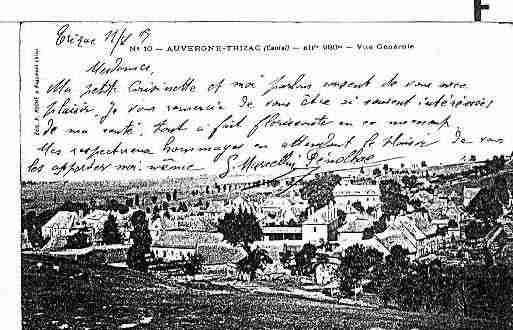 Trizac 11/8 05
No 10 - AUVERGNE-TRIZAC (Cantal) - altre 960m - Vue Générale
Madame,
Ma petite Cousinette et moi parlons souvent de vous avec
plaisir. Je vous remercie de vous être si souvent intéressée
de ma santé, tout à fait florissante en ce moment
Mes respectueux hommages en attendant le plaisir de vous
les apporter moi même